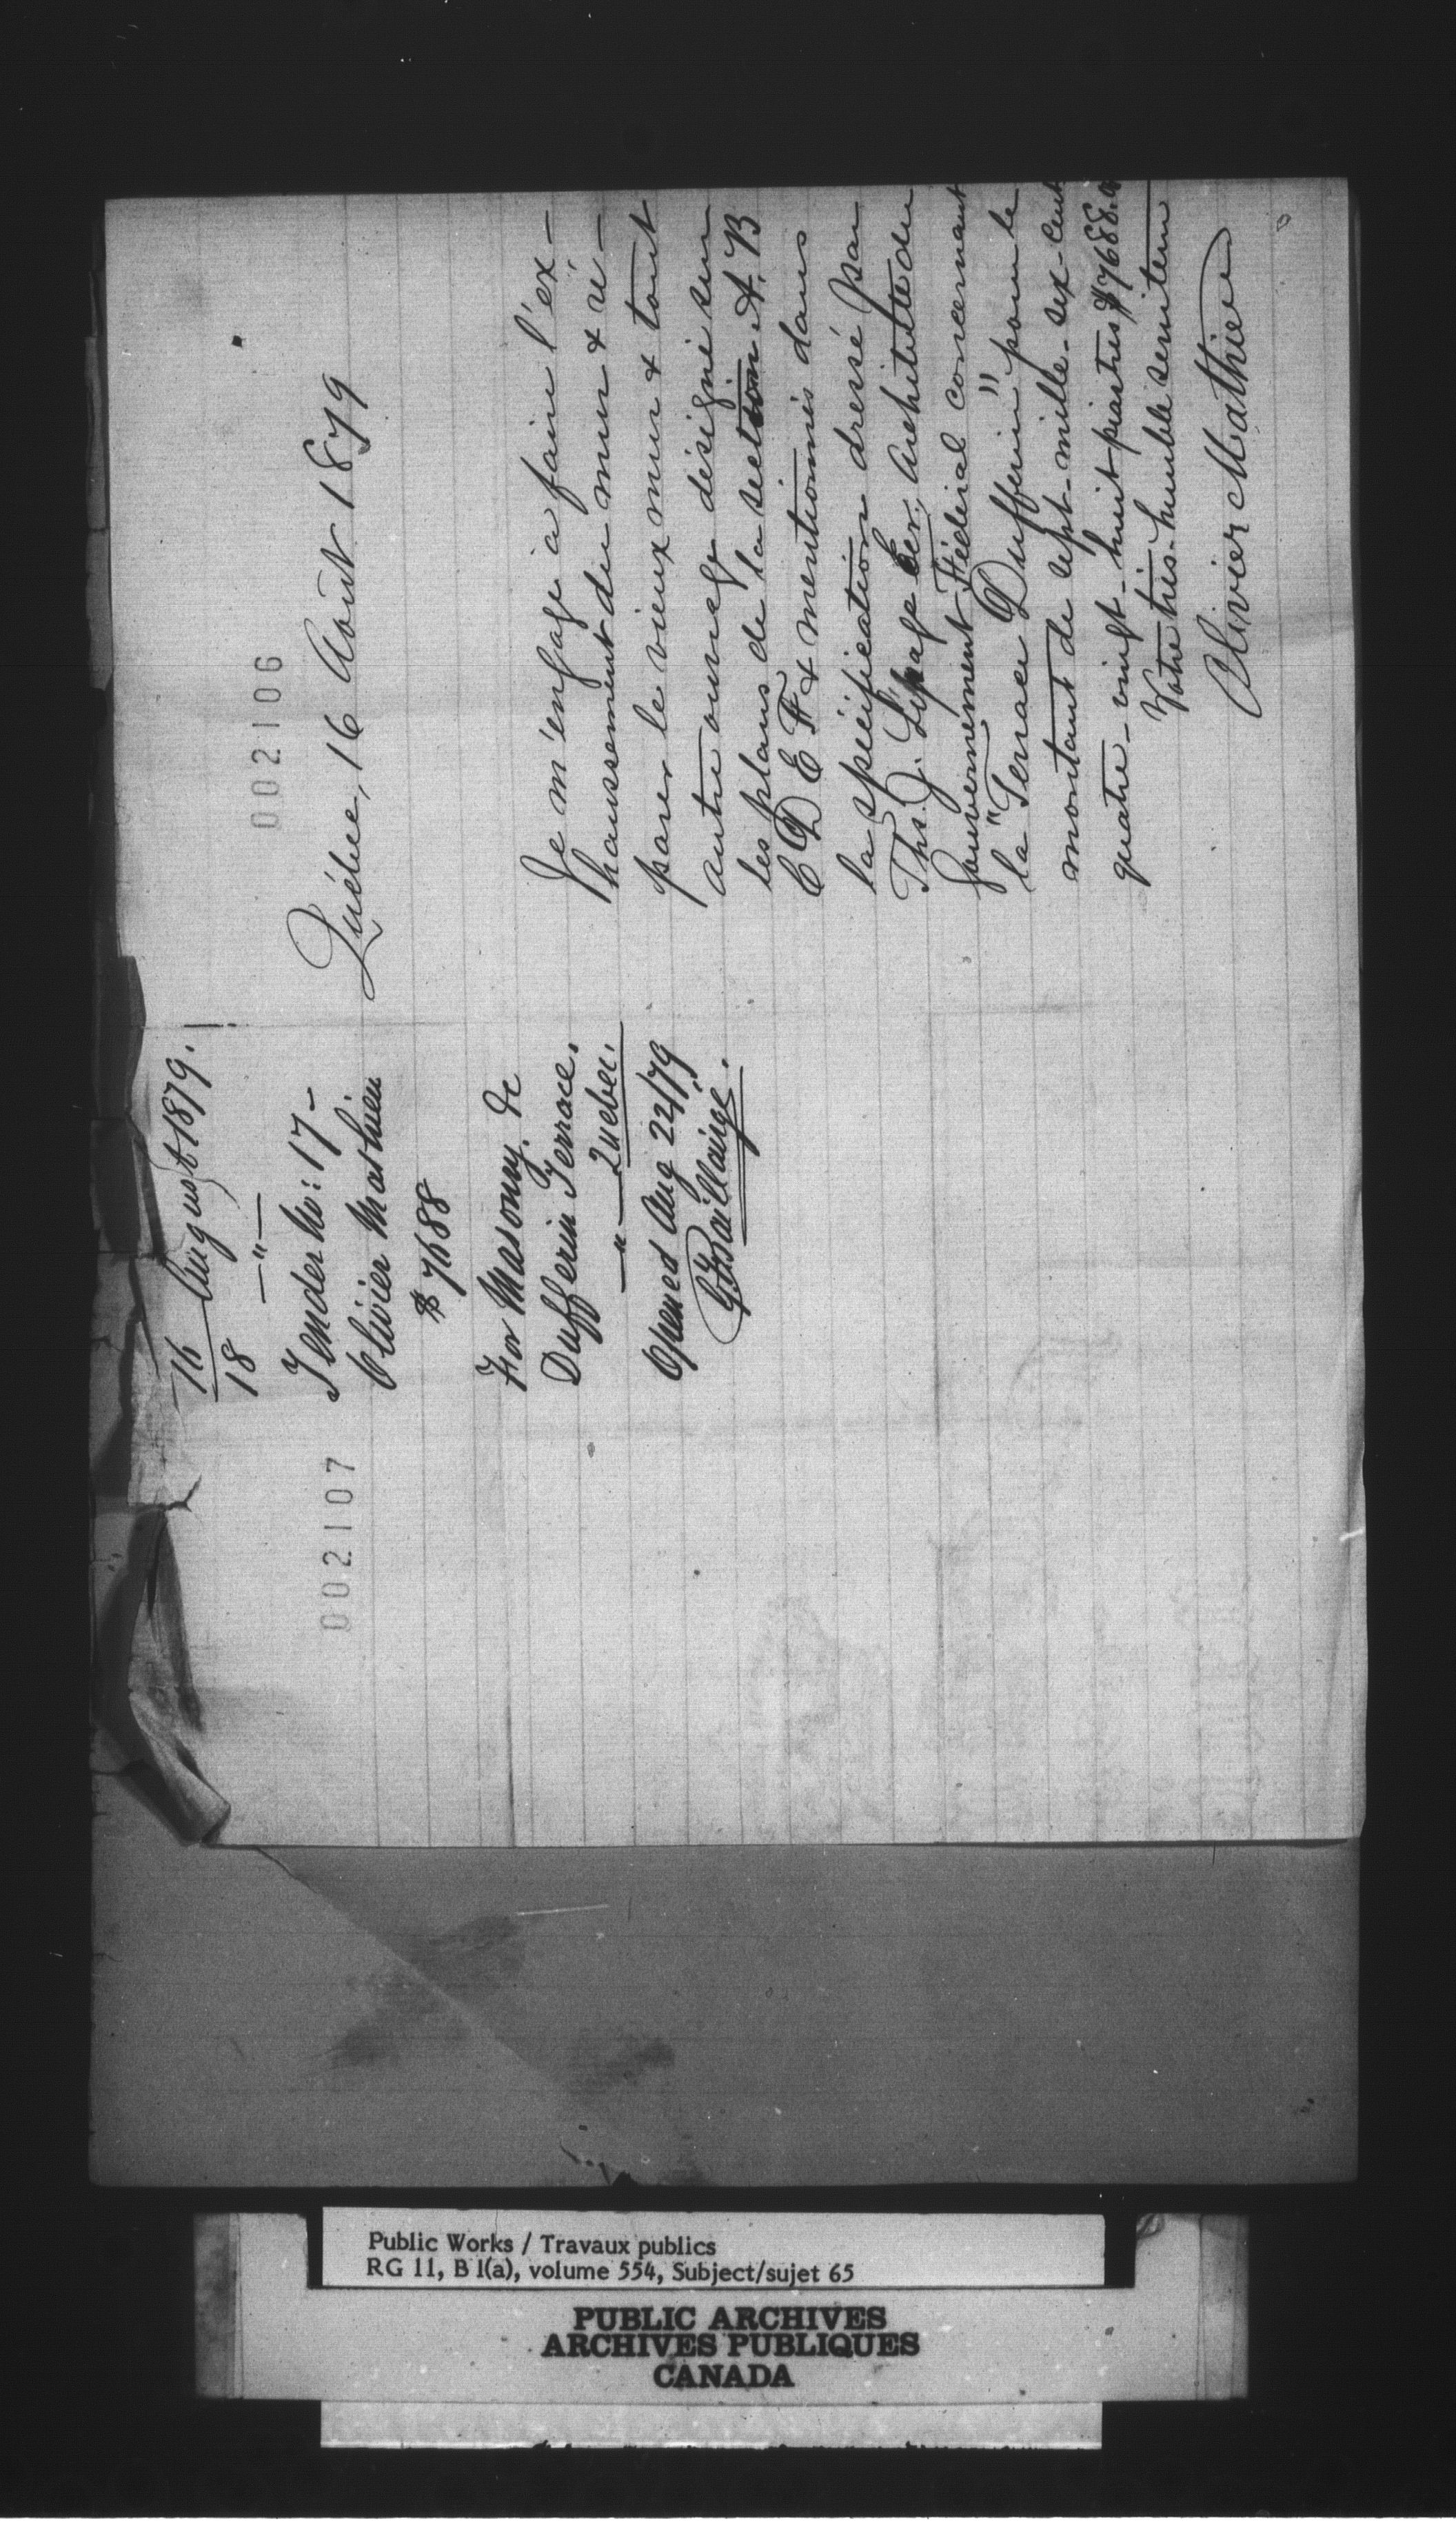 002107
16 August 1879.
18 —"—
Tender No: 17 –
Olivier Mathieu
$ 7688
For Masonry &c
Dufferin Terrace.
—"— Quebec.
Opened Aug 22/79
Baillairgé.
002106
Québec, 16 Août 1879
Je m'engage à faire l'ex-
haussement du mur & ré-
parer le vieux mur & tout
autre ouvrage désigné sur
les plans de la section A. B
C D E F & mentionnés dans
la spécification dressé par
Ths. J. Lepage Ecr, Architecte du
Gouvernement Fédéral concernant
la "Terrace Dufferin" pour le
montant de sept-mille-six-cent
quatre-vingt-huit piastres $7688.
Votre très-humble serviteur
Olivier Mathieu
Public Works / Travaux publics
RG 11, B 1(a), volume 554, Subject/sujet 65
PUBLIC ARCHIVES
ARCHIVES PUBLIQUES
CANADA